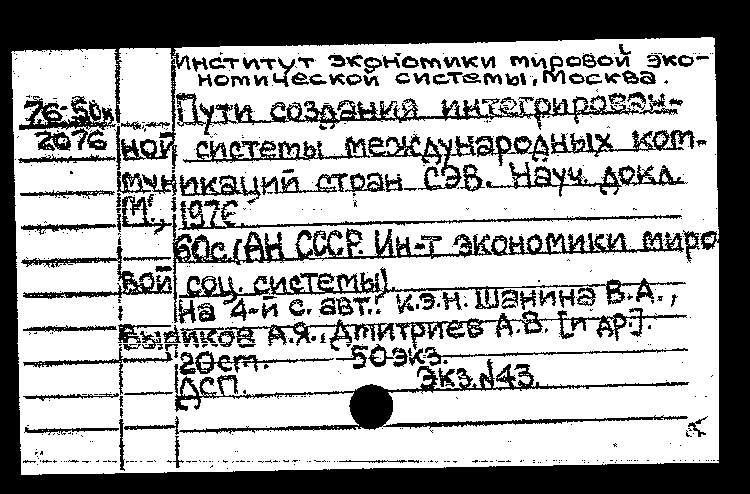 Институт экономики мировой эко-
номической системы, Москва.
76-50к
2076
Пути создания интегрирован-
ной системы международных ком-
муникаций стран СЭВ. Науч. докл.
М., 1976
60с. (АН СССР. Ин-т экономики миро-
вой соц. системы).
На 4-й с. авт.: к.э.н. Шанина В.А.,
Выриков А.Я., Дмитриев А.В. [и др.].
20см. 50экз.
ДСП. Экз.№43.